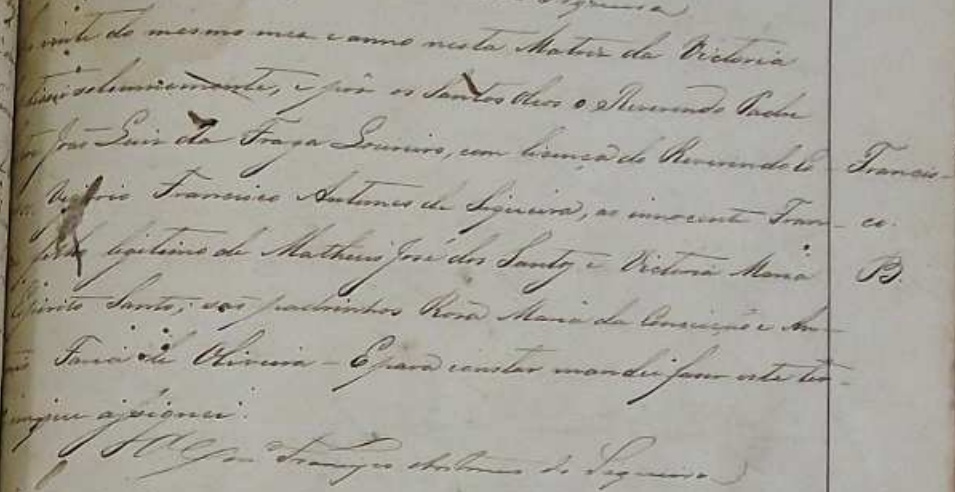 Siqueira
vinte do mesmo mez e anno nesta Matriz da Victoria
solemnemente, e pôr os Santos oleos o Reverendo Padre
João Luiz da Fraga Loureiro, com licença do Reverendo Co- Francis-
Vigario Francisco Antunes de Siqueira, ao innocente Fran- co.
filho legitimo de Matheus José dos Santos e Victoria Maria B.
Espirito Santo; sao padrinhos Rosa Maria da Conceição e An-
Faria de Oliveira - E para constar mandei fazer este ter-
que assignei.
Francisco Antunes de Siqueira